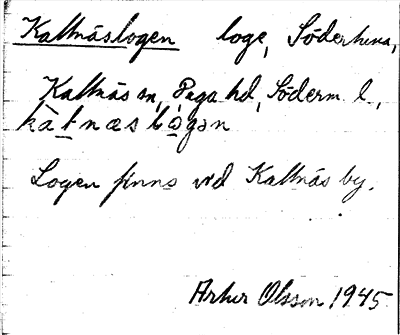 Kattnäslogen loge, Södertuna,
Kattnäs sn, Daga hd, Söderm. l.,
kàtnæslɷgən
Logen finns vid Kattnäs by.
Artur Olsson 1945